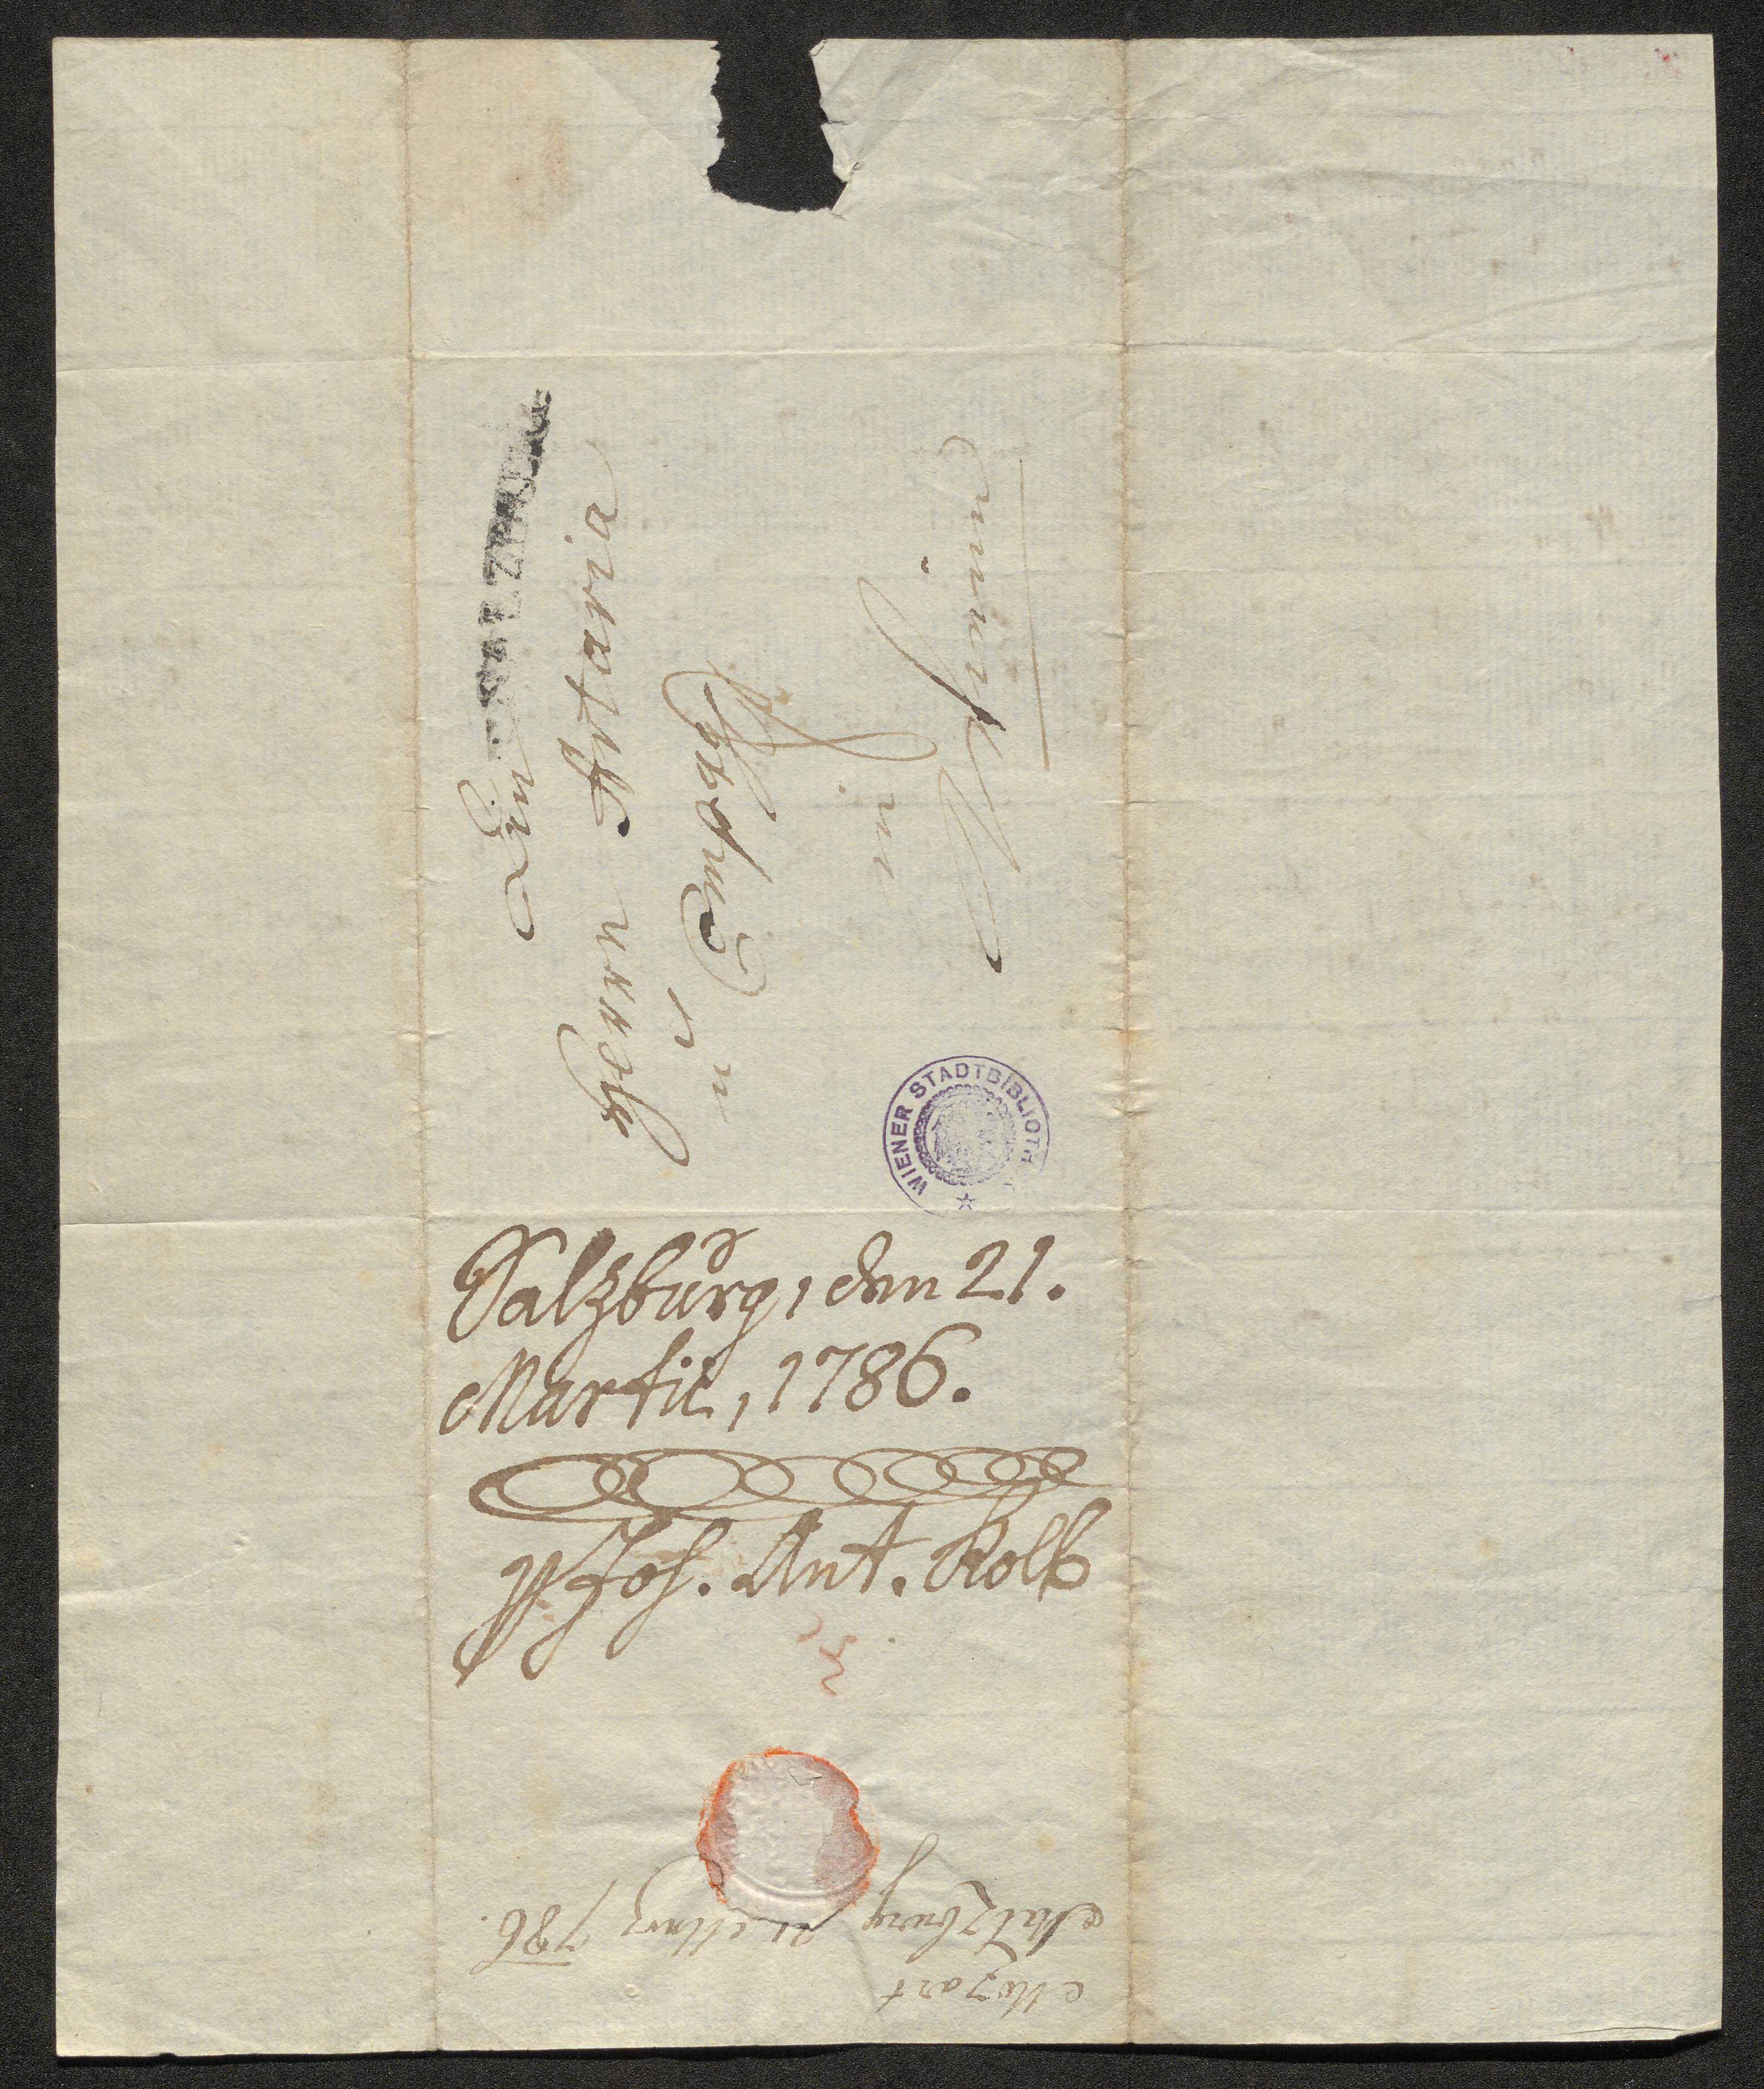 SALZBURG
Den
Herrn Artaria
et Compag:
in
Wienn
WIENER STADTBIBLIOTH
Salzburg, den 21.
Martii, 1786.
Joh. Ant. Kolb
Mozart
Salzburg 21 Marz 786.